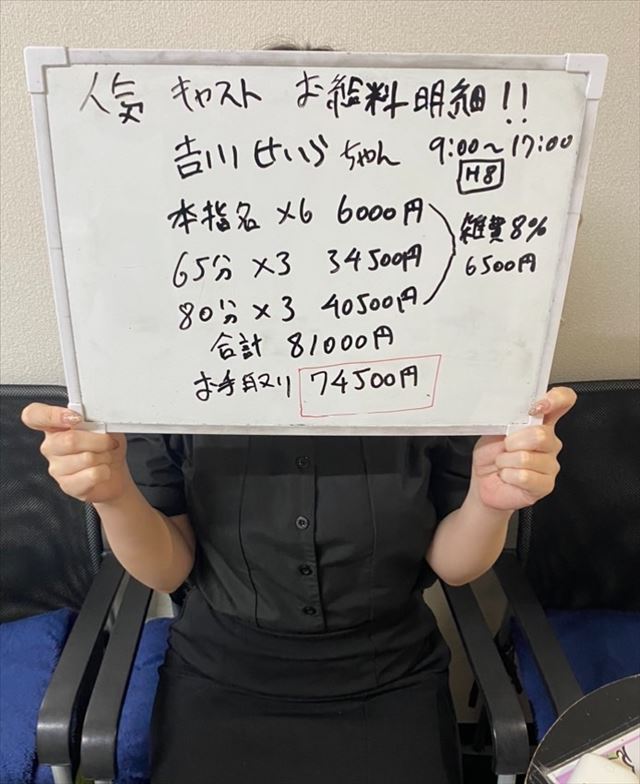 人気 キャスト お給料明細!!
吉川 せいらちゃん 9:00〜17:00
H8
本指名 ×6 6000円
65分 ×3 34500円
80分 ×3 40500円
雑費8%
6500円
合計 81000円
お手取り 74500円